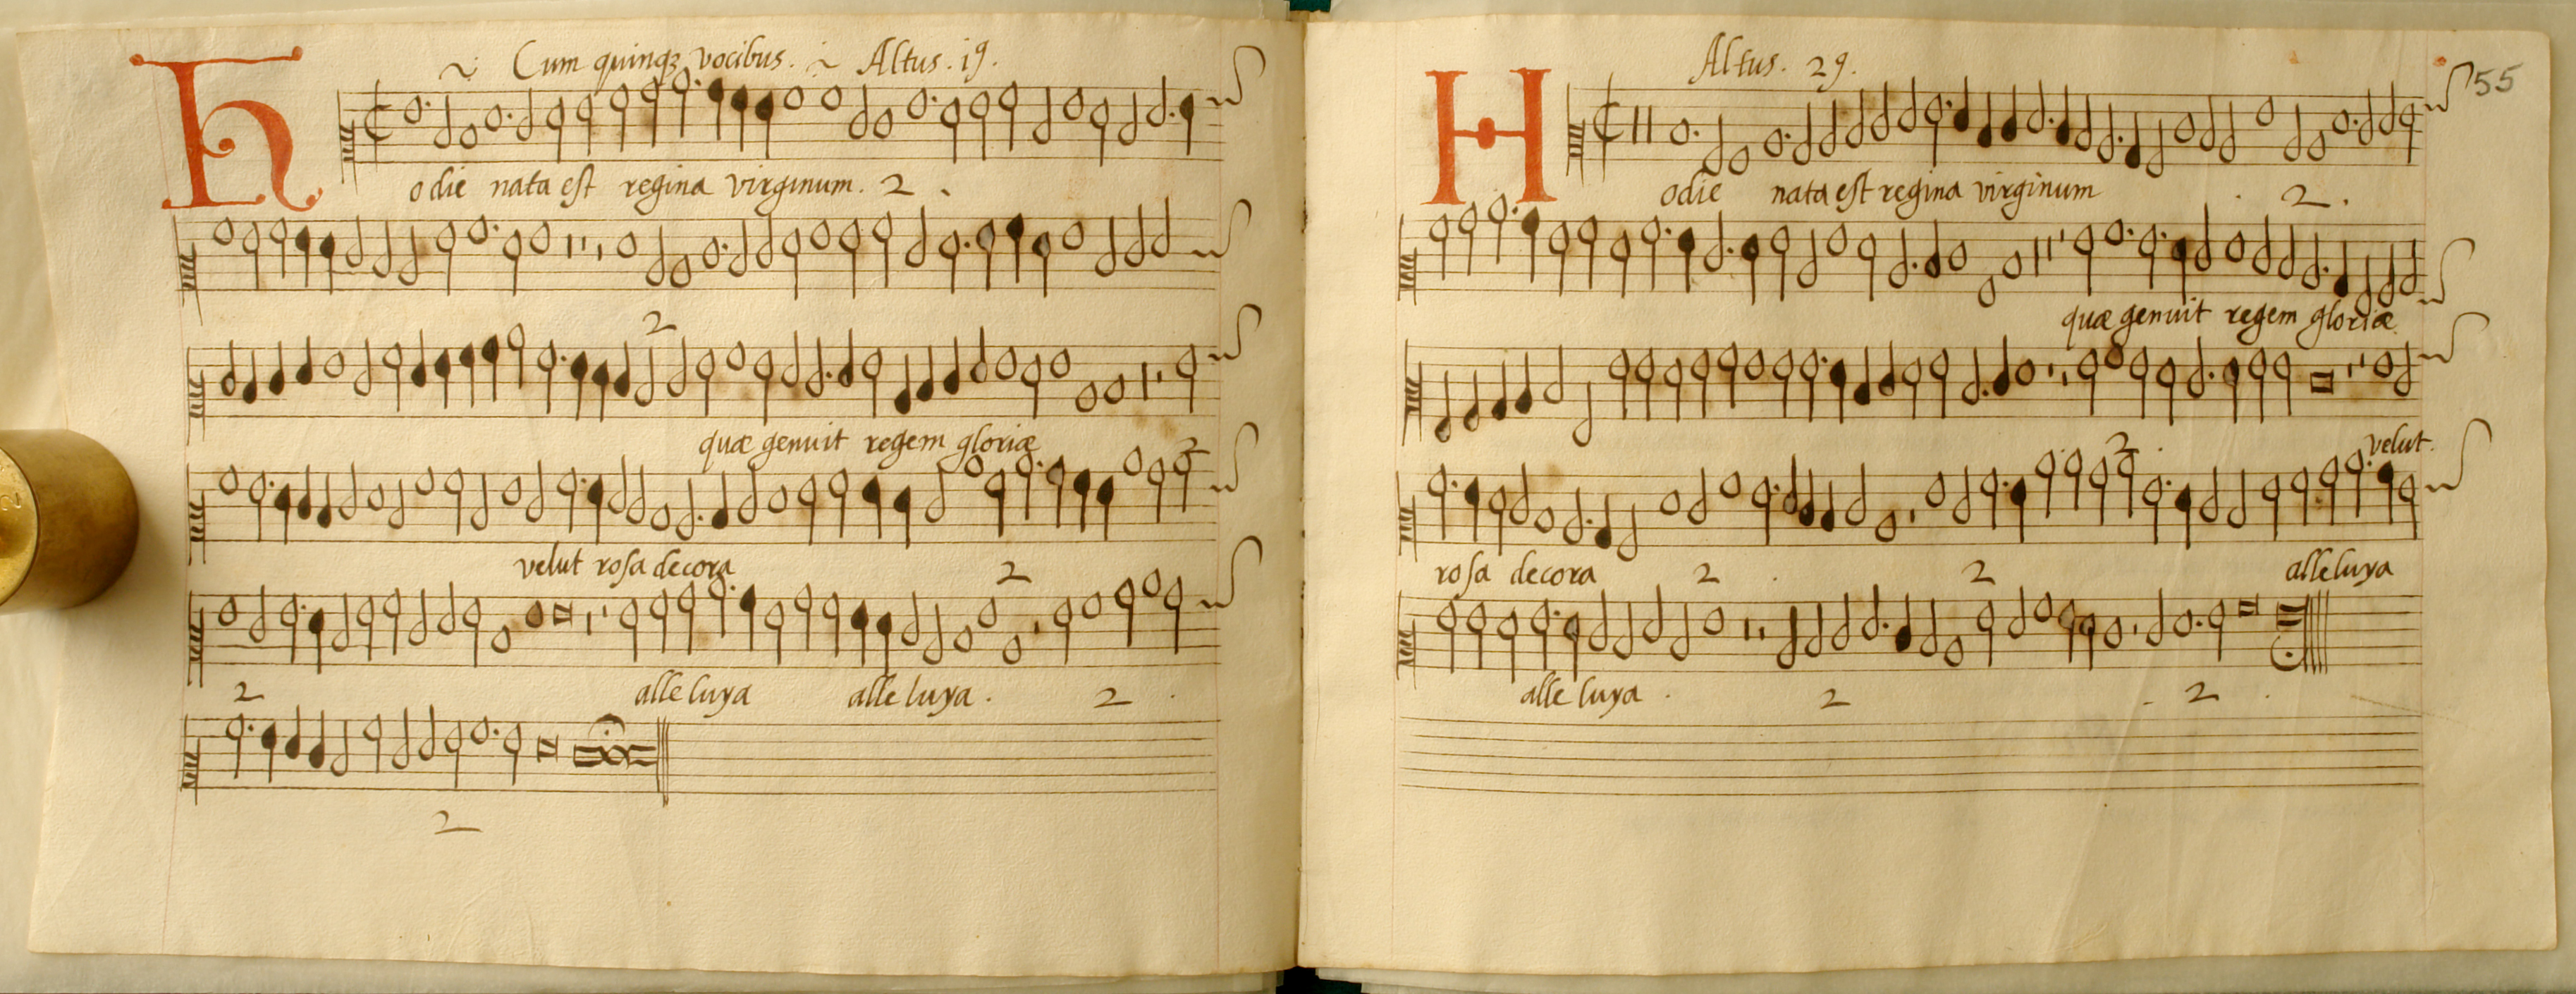 Cum quinqꝫ vocibus. Altus. 1ꝰ.
H
odie nata est regina virginum. 2
2
quæ genuit regem gloriæ 2
velut rosa decora 2
2 alleluya alleluya. 2
2
Altus. 2ꝰ. 55
H
odie nata est regina virginum 2.
quæ genuit regem gloriæ
2. velut
rosa decora 2 2 alleluya
alleluya. 2 2